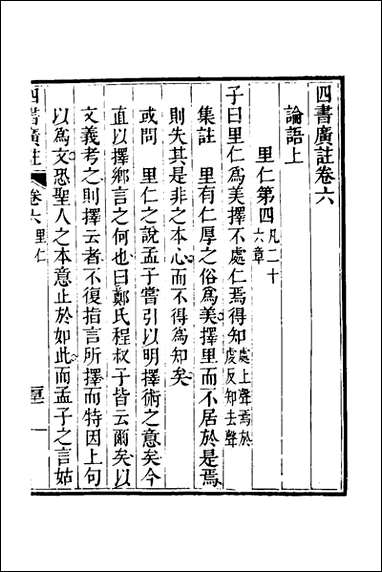 四書廣註卷六
論語上
里仁第四凡二十六章
子曰里仁爲美擇不處仁焉得知處上聲焉於虔反知去聲
集註　里有仁厚之俗爲美擇里而不居於是焉
則失其是非之本心而不得爲知矣
或問　里仁之說孟子嘗引以明擇術之意矣今
直以擇鄉言之何也曰鄭氏程叔子皆云爾矣以
文義考之則擇云者不復指言所擇而特因上句
以爲文恐聖人之本意止於如此而孟子之言姑
四書廣註　卷六　里仁　一